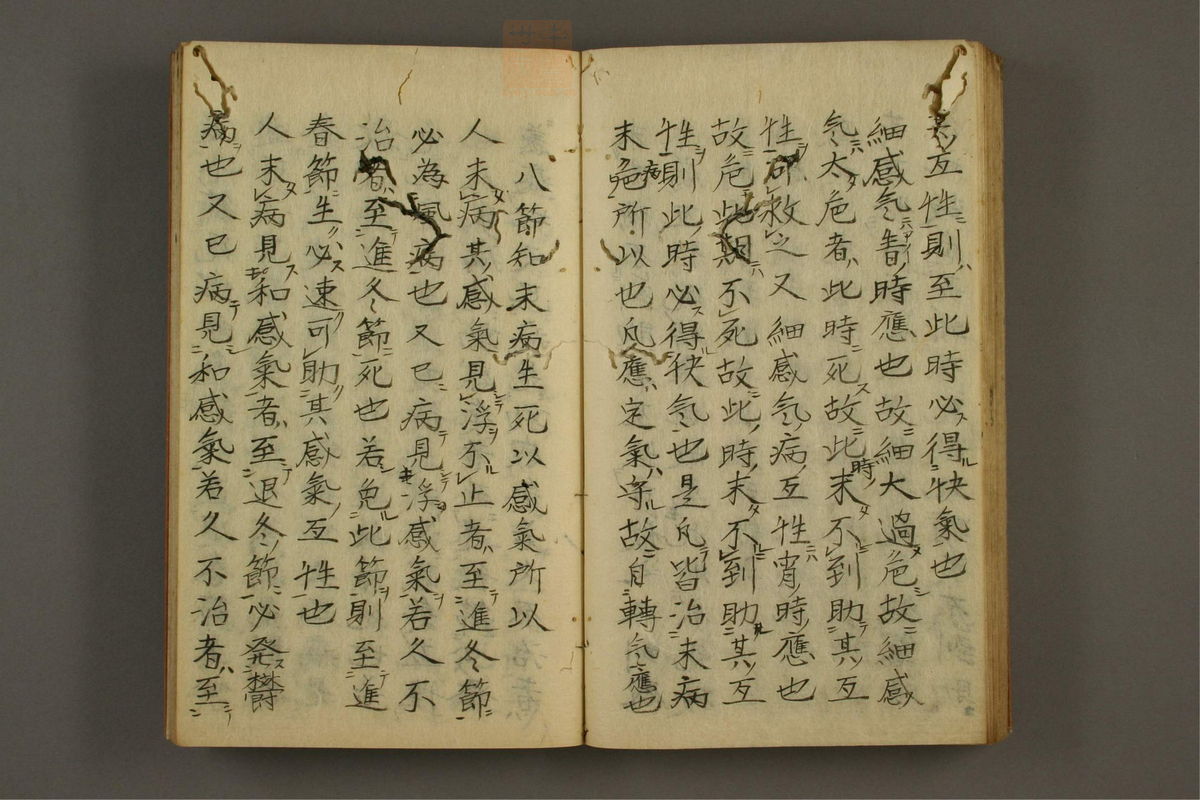 互性則至此時必得快氣也
細感气皆時應也故細大過危故細感
气太危者此時死故此時末不到助其互
性可救之又細感气病互性宵時應也
故危此期不死故此時末不到助其互
性則此時必得快气也是凡皆治末病
末病危所以也凡應定氣守故自轉气應也
八節知末病生死以感氣所以
人末病其感氣見浮不止者至進冬節
必為風病也又已病見浮感氣若久不
治者至進冬節死也若免此節則至進
春節生必速可助其感氣互性也
人末病見和感氣者至退冬節必発欝
病也又已病見和感氣若久不治者至